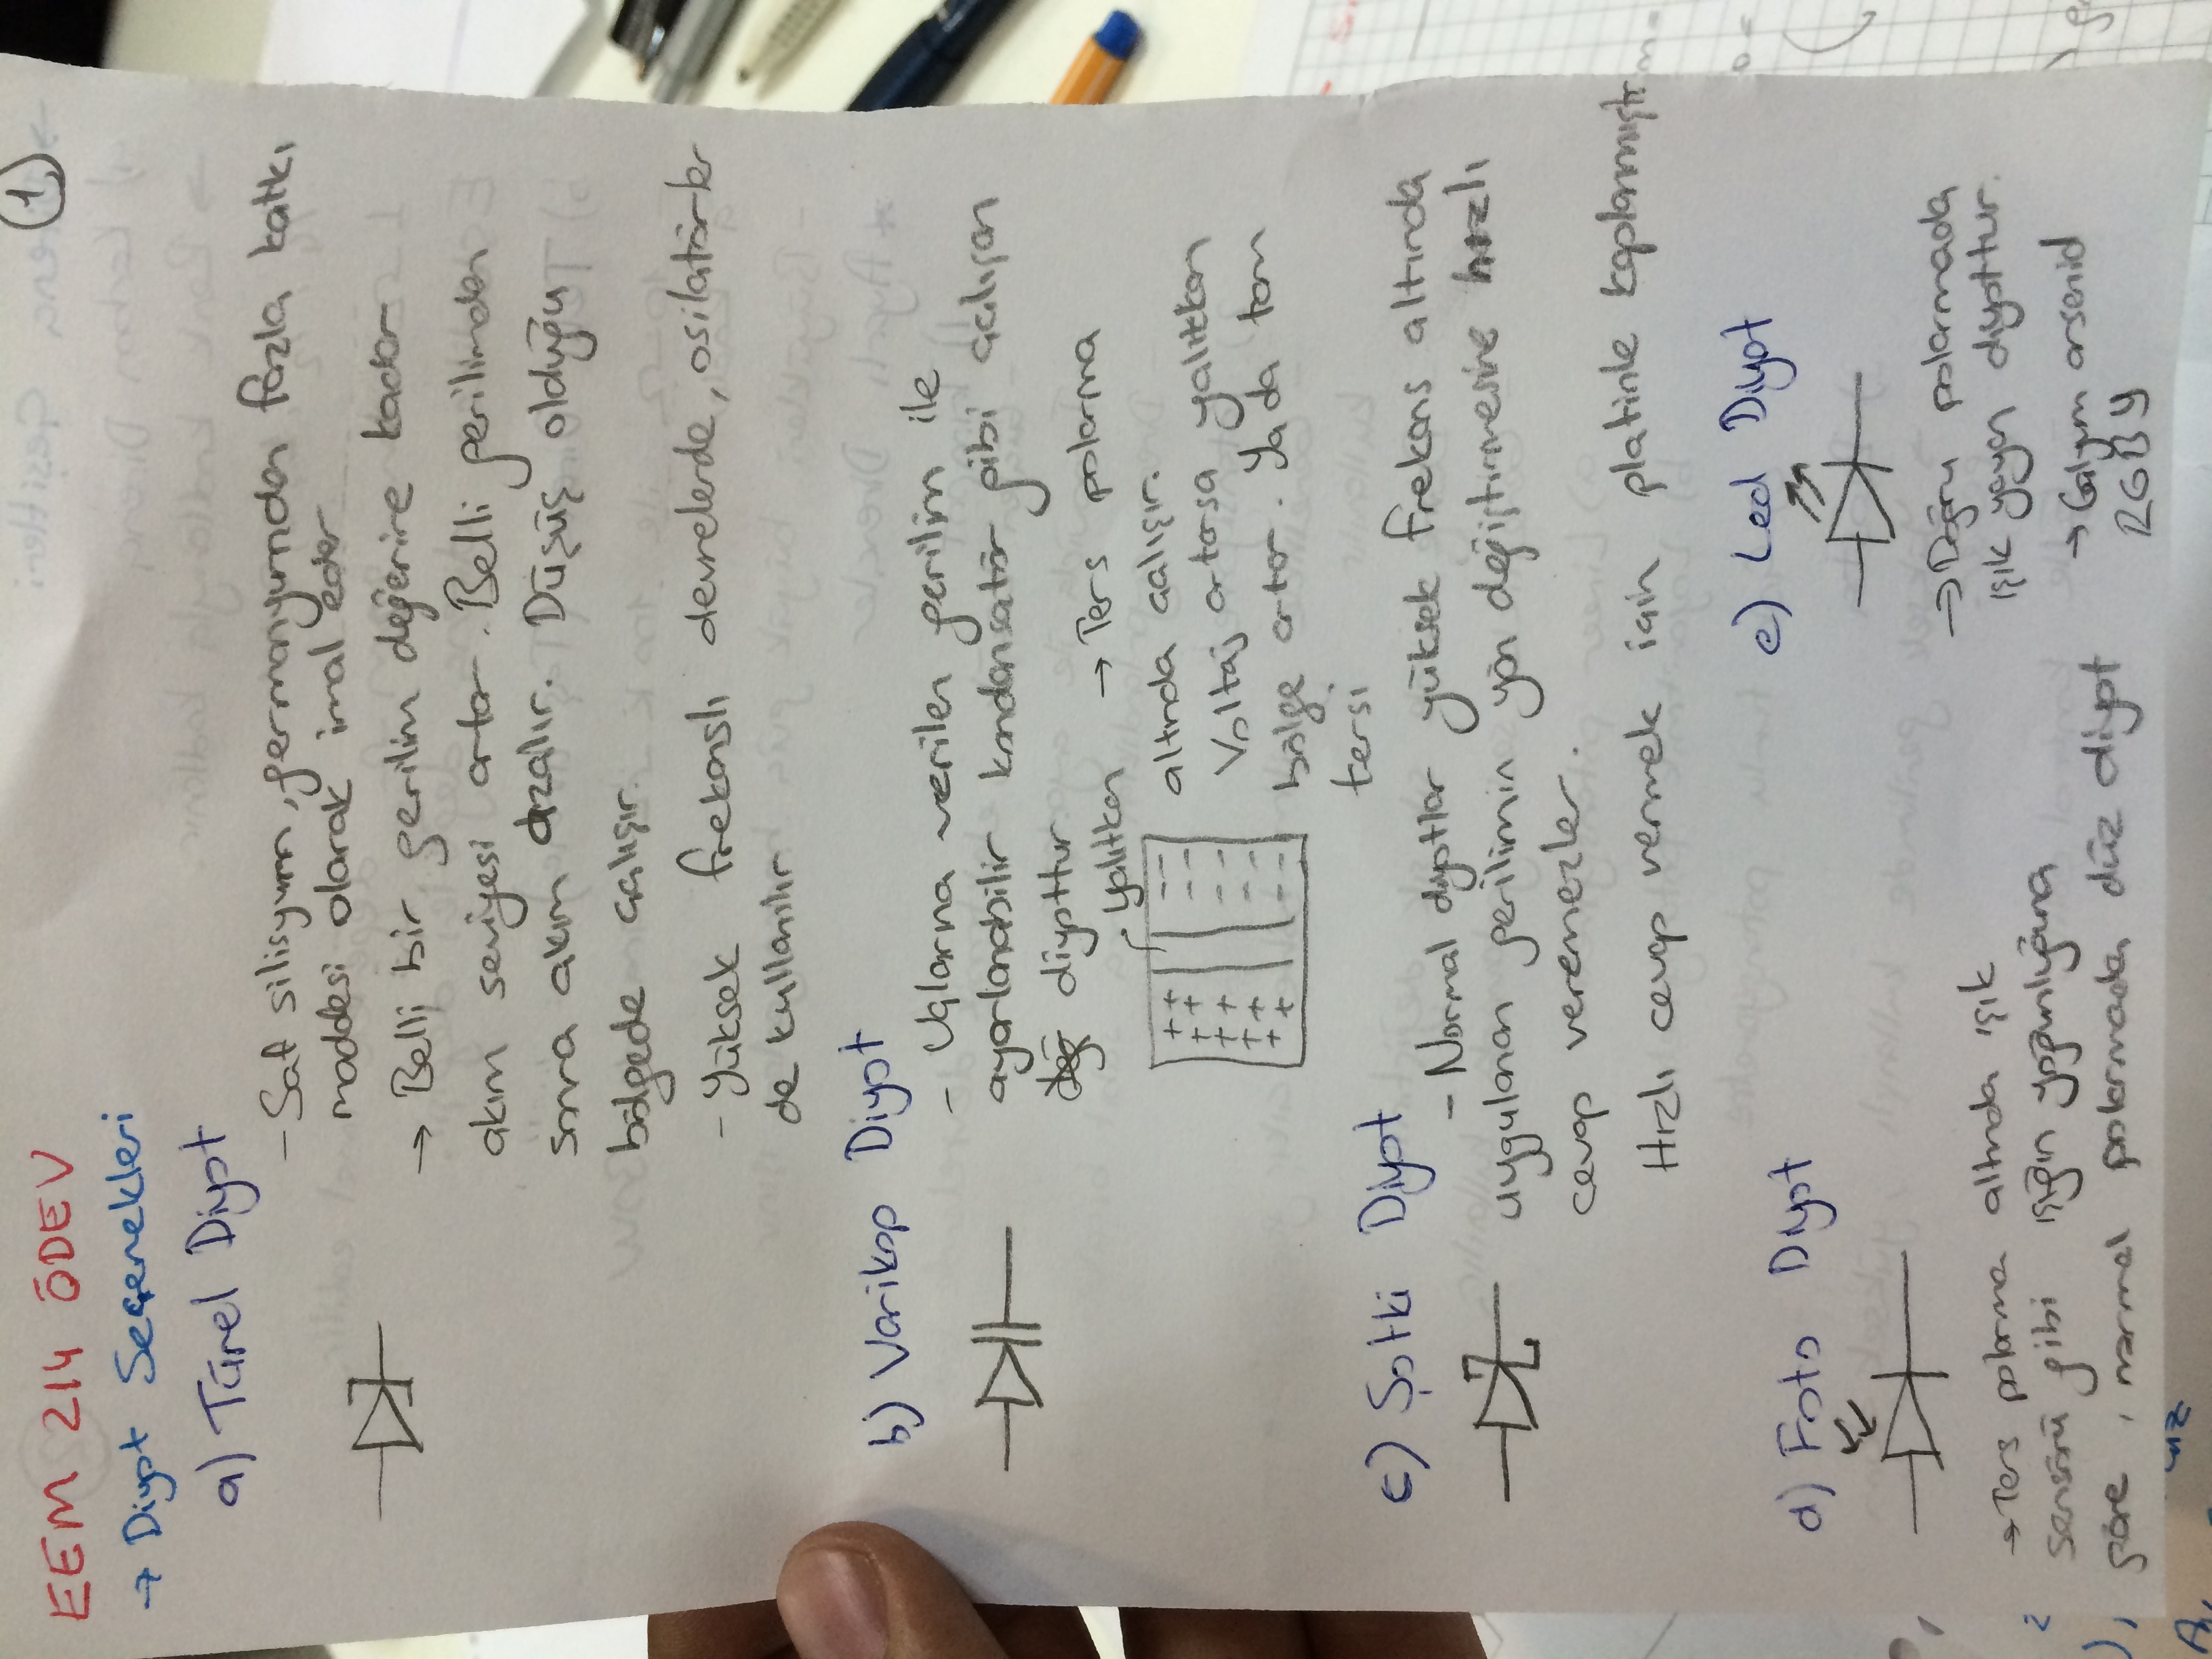 1
EEM 214 ÖDEV
→ Diyot Seçenekleri
a) Türel Diyot
- Saf silisyum, germanyumdan fazla katkı
maddesi olarak imal eder
→ Belli bir gerilim değerine kadar
akım seviyesi artar. Belli gerilimden
sonra akım azalır. Düşüş olduğu
bölgede çalışır.
- Yüksek frekanslı devrelerde, osilatörler
de kullanılır
b) Varikap Diyot
- Uçlarına verilen gerilim ile
ayarlanabilir kondansatör gibi çalışan
diyottur
yalıtkan → Ters polarma
altında çalışır.
Voltaj artarsa yalıtkan
bölge artar. Ya da tam
tersi
c) Şotki Diyot
- Normal diyotlar yüksek frekans altında
uygulanan gerilimin yön değiştirmesine hızlı
cevap veremezler.
Hızlı cevap vermek için platinle kaplanmıştır
d) Foto Diyot
→ Ters polarma altında ışık
sensörü gibi ışığın yoğunluğuna
göre, normal polarmada düz diyot
e) Led Diyot
→ Doğru polarmada
ışık yayan diyottur.
→ Galyum arsenid
RGBY